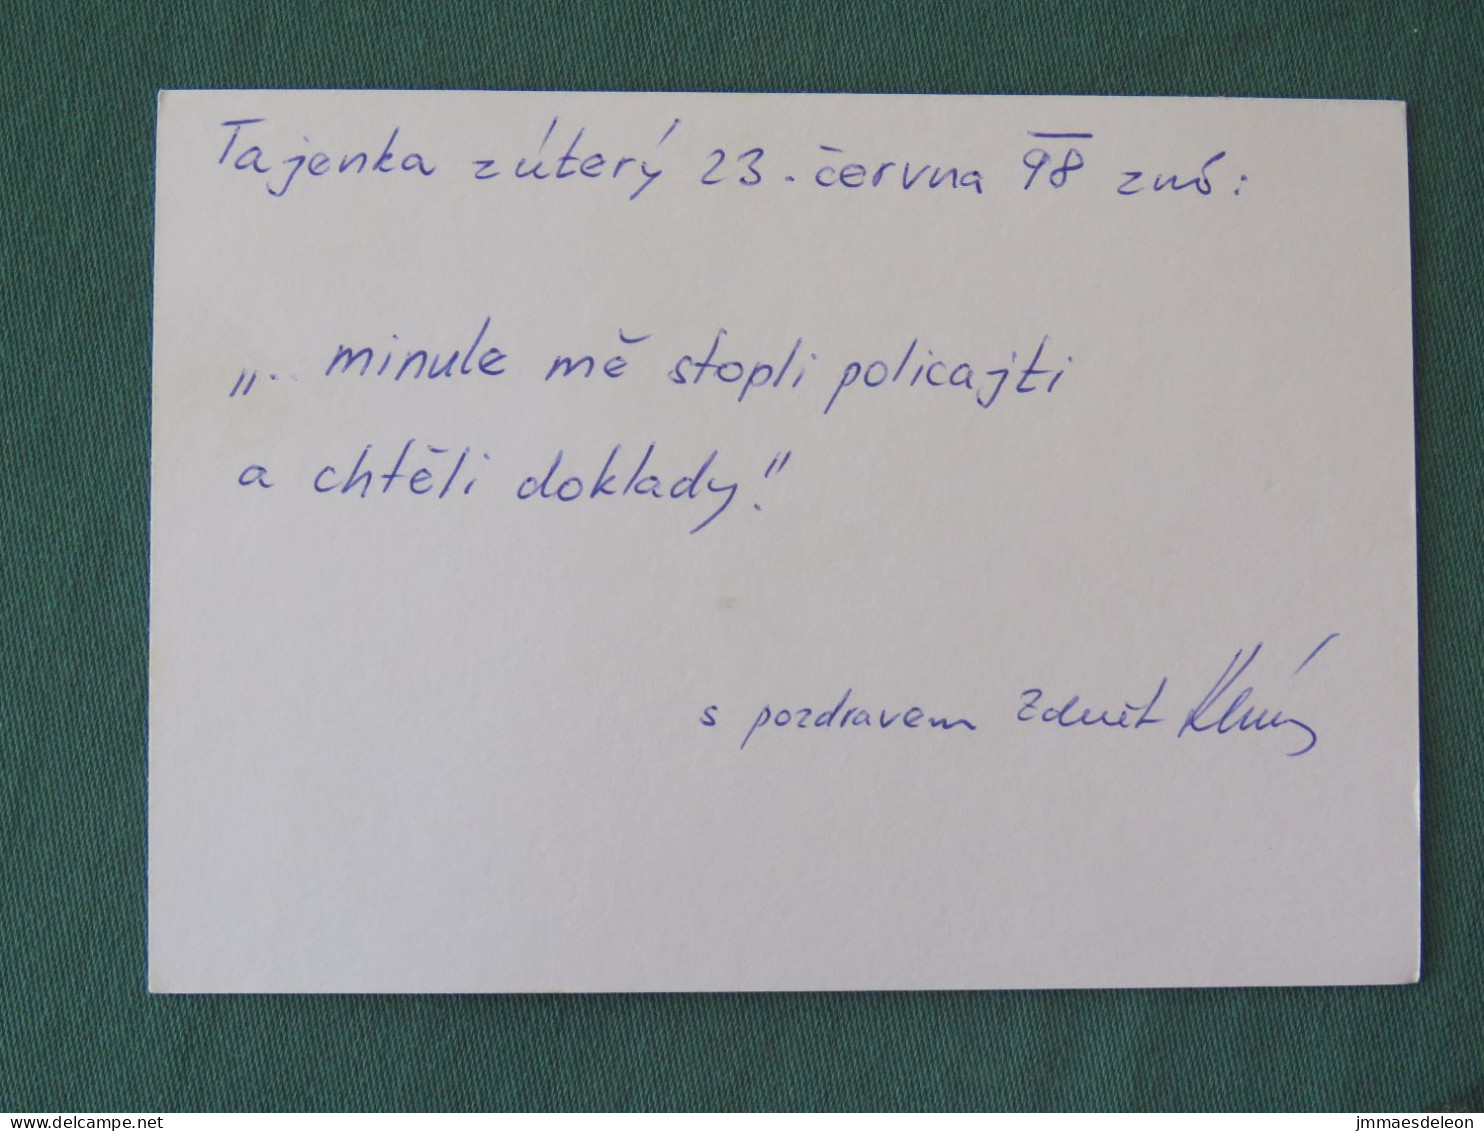 Tajenka z úterý 23. června 98 zní:
„.. minule mě stopli policajti
a chtěli doklady."
s pozdravem
www.delcampe.net
jmmaesdeleon